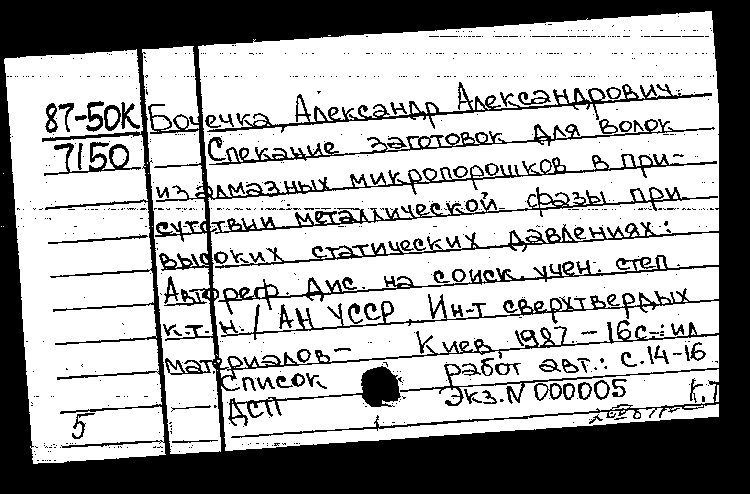 87-50К Бочечка, Александр Александрович.
7150 Спекание заготовок для волок
из алмазных микропорошков в при-
сутствии металлической фазы при
высоких статических давлениях:
Автореф. дис. на соиск. учен. степ.
к.т.н. / АН УССР, Ин-т сверхтвердых
материалов- Киев, 1987. - 16с.: ил
Список работ авт.: с.14-16
ДСП Экз.N 000005 К.Т
5